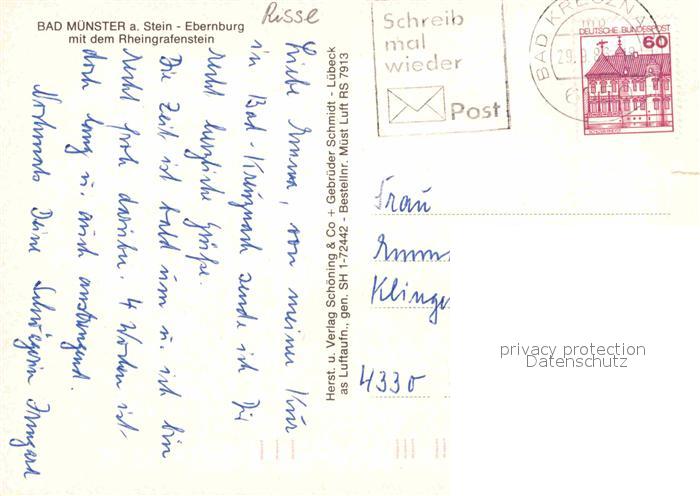 BAD MÜNSTER a. Stein - Ebernburg
mit dem Rheingrafenstein
Risse
Liebe Emma, von meiner Kur
in Bad-Kreuznach sende ich Dir
recht herzliche Grüße.
Die Zeit ist bald um u. ich bin
recht froh darüber. 4 Wochen ist
doch lang u. auch anstrengend.
Nochmals Deine Schwägerin Irmgard
Herst. u. Verlag Schöning & Co + Gebrüder Schmidt - Lübeck
as Luftaufn., gen. SH 1-72442 - Bestellnr. Müst Luft RS 7913
Schreib
mal
wieder
Post
BAD KREUZNA
29.9.
DEUTSCHE BUNDESPOST
60
Frau
Emm
Klinge
4330
privacy protection
Datenschutz